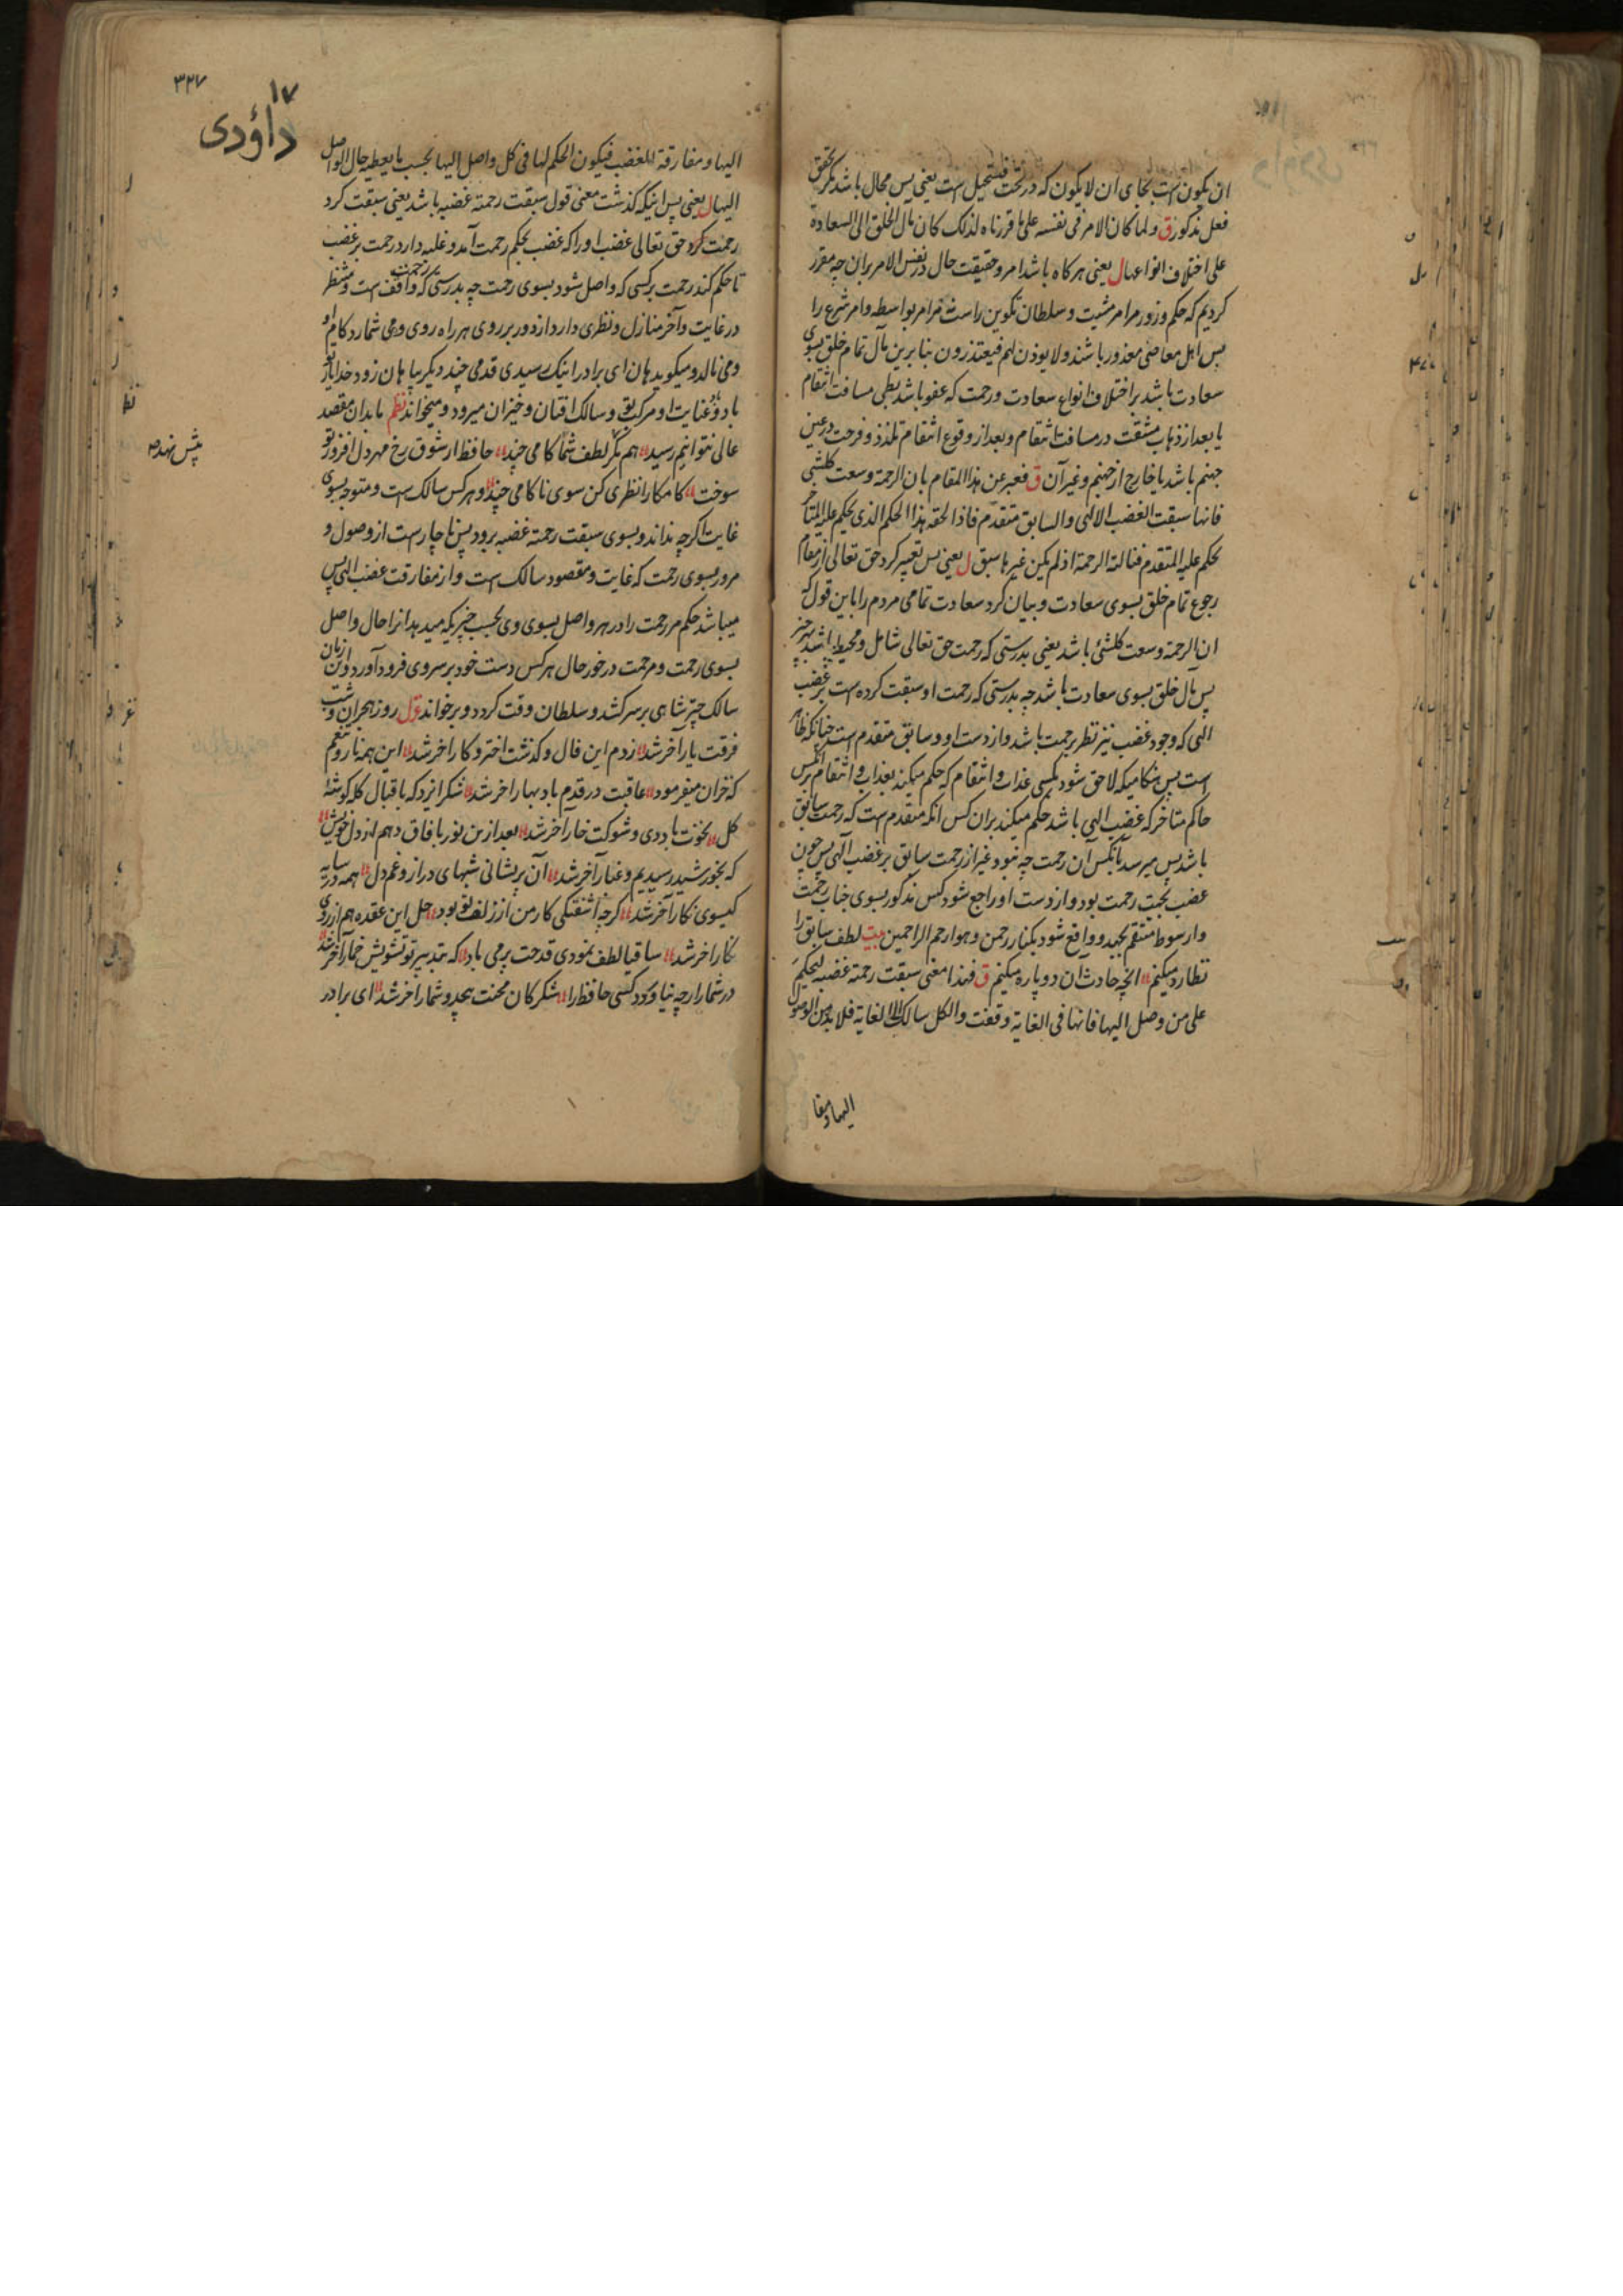 ان یکون است بجای ان لا یکون که در تحت فیستحیل است یعنی پس محال باشد مگر تحقق
فعل مذکور ق ولما کان الامر فی نفسه علی ما قررناه لذلک کان مآل الخلق الی السعادة
علی اختلاف انواعها ل یعنی هرکاه باشد امر و حقیقت حال در نفس الامر بران چه مقرر
کردیم که حکم وزور مر امر مشیت و سلطان تکوین راست نه مر امر بواسطه وامر شرع را
پس اهل معاصی معذور باشند ولا یوذن لهم فیعتذرون بنا برین مآل تمام خلق بسوی
سعادت باشد بر اختلاف انواع سعادت ورحمت که عفو باشد بطی مسافت انتقام
یا بعد از ذهاب مشقت در مسافت انتقام و بعد از وقوع انتقام تلذذ و فرحت در عین
جهنم باشد یا خارج از جهنم وغیر آن ق فعبر عن هذا المقام بان الرحمة وسعت کلشئ
فانها سبقت الغضب الالهی والسابق متقدم فاذا لحقه هذا الحکم الذی یحکم علیه المتاخر
حکم علیه المتقدم فنالته الرحمة اذ لم یکن غیرها سبق ل یعنی پس تعبیر کرد حق تعالی از مقام
رجوع تمام خلق بسوی سعادت و بیان کرد سعادت تمامی مردم را باین قول که
ان الرحمة وسعت کلشئ باشد یعنی بدرستی که رحمت حق تعالی شامل ومحیط باشد بهر چیز
پس مآل خلق بسوی سعادت باشد چه بدرستی که رحمت او سبقت کرده است بر غضب
الهی که وجود غضب نیز نظر برحمت باشد و از دست او و سابق متقدم است چنانکه ظاهر
است پس هنکامیکه لاحق شود بکسی عذاب و انتقام که حکم میکند بعذاب و انتقام برکس
حاکم متاخر که غضب الهی باشد حکم میکند بران کس انکه متقدم است که رحمت سابق
باشد پس میرسد بآنکس آن رحمت چه نبود غیر از رحمت سابق بر غضب الهی پس چون
غضب بجنب رحمت بود و از دست او راجع شود کس مذکور بسوی جناب رحمت
و از سوط منتقم بجهد و واقع شود بکنار رحمن و هو ارحم الراحمین بیت لطف سابق را
نظاره میکنم ؞ انچه حادث ان دو پاره میکنم ق فهذا معنی سبقت رحمته غضبه لتحکم
علی من وصل الیها فانها فی الغایة وقفت والکل سالک الی الغایة فلا بد من الوصول
الیها ومفا
۳۲۷
۱۷
داؤدی
الیها ومفارقة الغضب فیکون الحکم لها فی کل واصل الیها بحسب ما یعطیه حال الواصل
الیها ل یعنی پس اینکه کذشت معنی قول سبقت رحمته غضبه باشد یعنی سبقت کرد
رحمت کرد حق تعالی غضب او را که غضب بحکم رحمت آمد و غلبه دارد رحمت بر غضب
تا حکم کند رحمت برکسی که واصل شود بسوی رحمت چه بدرستی که رحمت واقف است و منتظر
در غایت و آخر منازل و نظری دارد از دور بر روی هر راه روی و می شمارد کام او
ومی نالد و میکوید هان ای برادر اینک رسیدی قدمی چند دیکر بیا هان زود خدا یار تو
باد و غنایت او مرکب تو و سالک افتان و خیزان میرود و میخواند نظم ما بدان مقصد
عالی نتوانیم رسید ؞ هم مکر لطف شما کامی چند ؞ حافظ از شوق رخ مهر دل افروز تو
سوخت ؞ کامکارا نظری کن سوی ناکامی چند ؞ و هر کس سالک است و متوجه بسوی
غایت اکرچه نداند و بسوی سبقت رحمته غضبه برود پس ناچار است از وصول و
مرور بسوی رحمت که غایت و مقصود سالک است و از مفارقت غضب الهی پس
میباشد حکم مر رحمت را در هر واصل بسوی وی بحسب چیزیکه میدهد انرا حال واصل
بسوی رحمت و مرحمت در خور حال هر کس دست خود بر سر وی فرود آورد و این زمان
سالک چتر شاهی بر سر کشد و سلطان وقت کردد و برخواند غزل روز هجران و شب
فرقت یار آخر شد ؞ زدم این فال و کذشت اختر و کار اخر شد ؞ این همه ناز و تنعم
که خزان میفرمود ؞ عاقبت در قدم باد بهار اخر شد ؞ شکر ایزد که باقبال کله کوشه
کل ؞ نخوت باد دی و شوکت خار آخر شد ؞ بعد ازین نور بافاق دهم از دل خویش ؞
که بخورشید رسیدیم و غبار آخر شد ؞ آن پریشانی شبهای دراز و غم دل ؞ همه در سایه
کیسوی نکار آخر شد ؞ کرچه اشفتکی کار من از زلف تو بود ؞ حل این عقده هم از روی
نکار اخر شد ؞ ساقیا لطف نمودی قدحت پر می باد ؞ که بتدبیر تو تشویش خمار آخر شد ؞
در شمار ارچه نیاورد کسی حافظ را ؞ شکر کان محنت بیحد و شمار اخر شد ؞ ای برادر